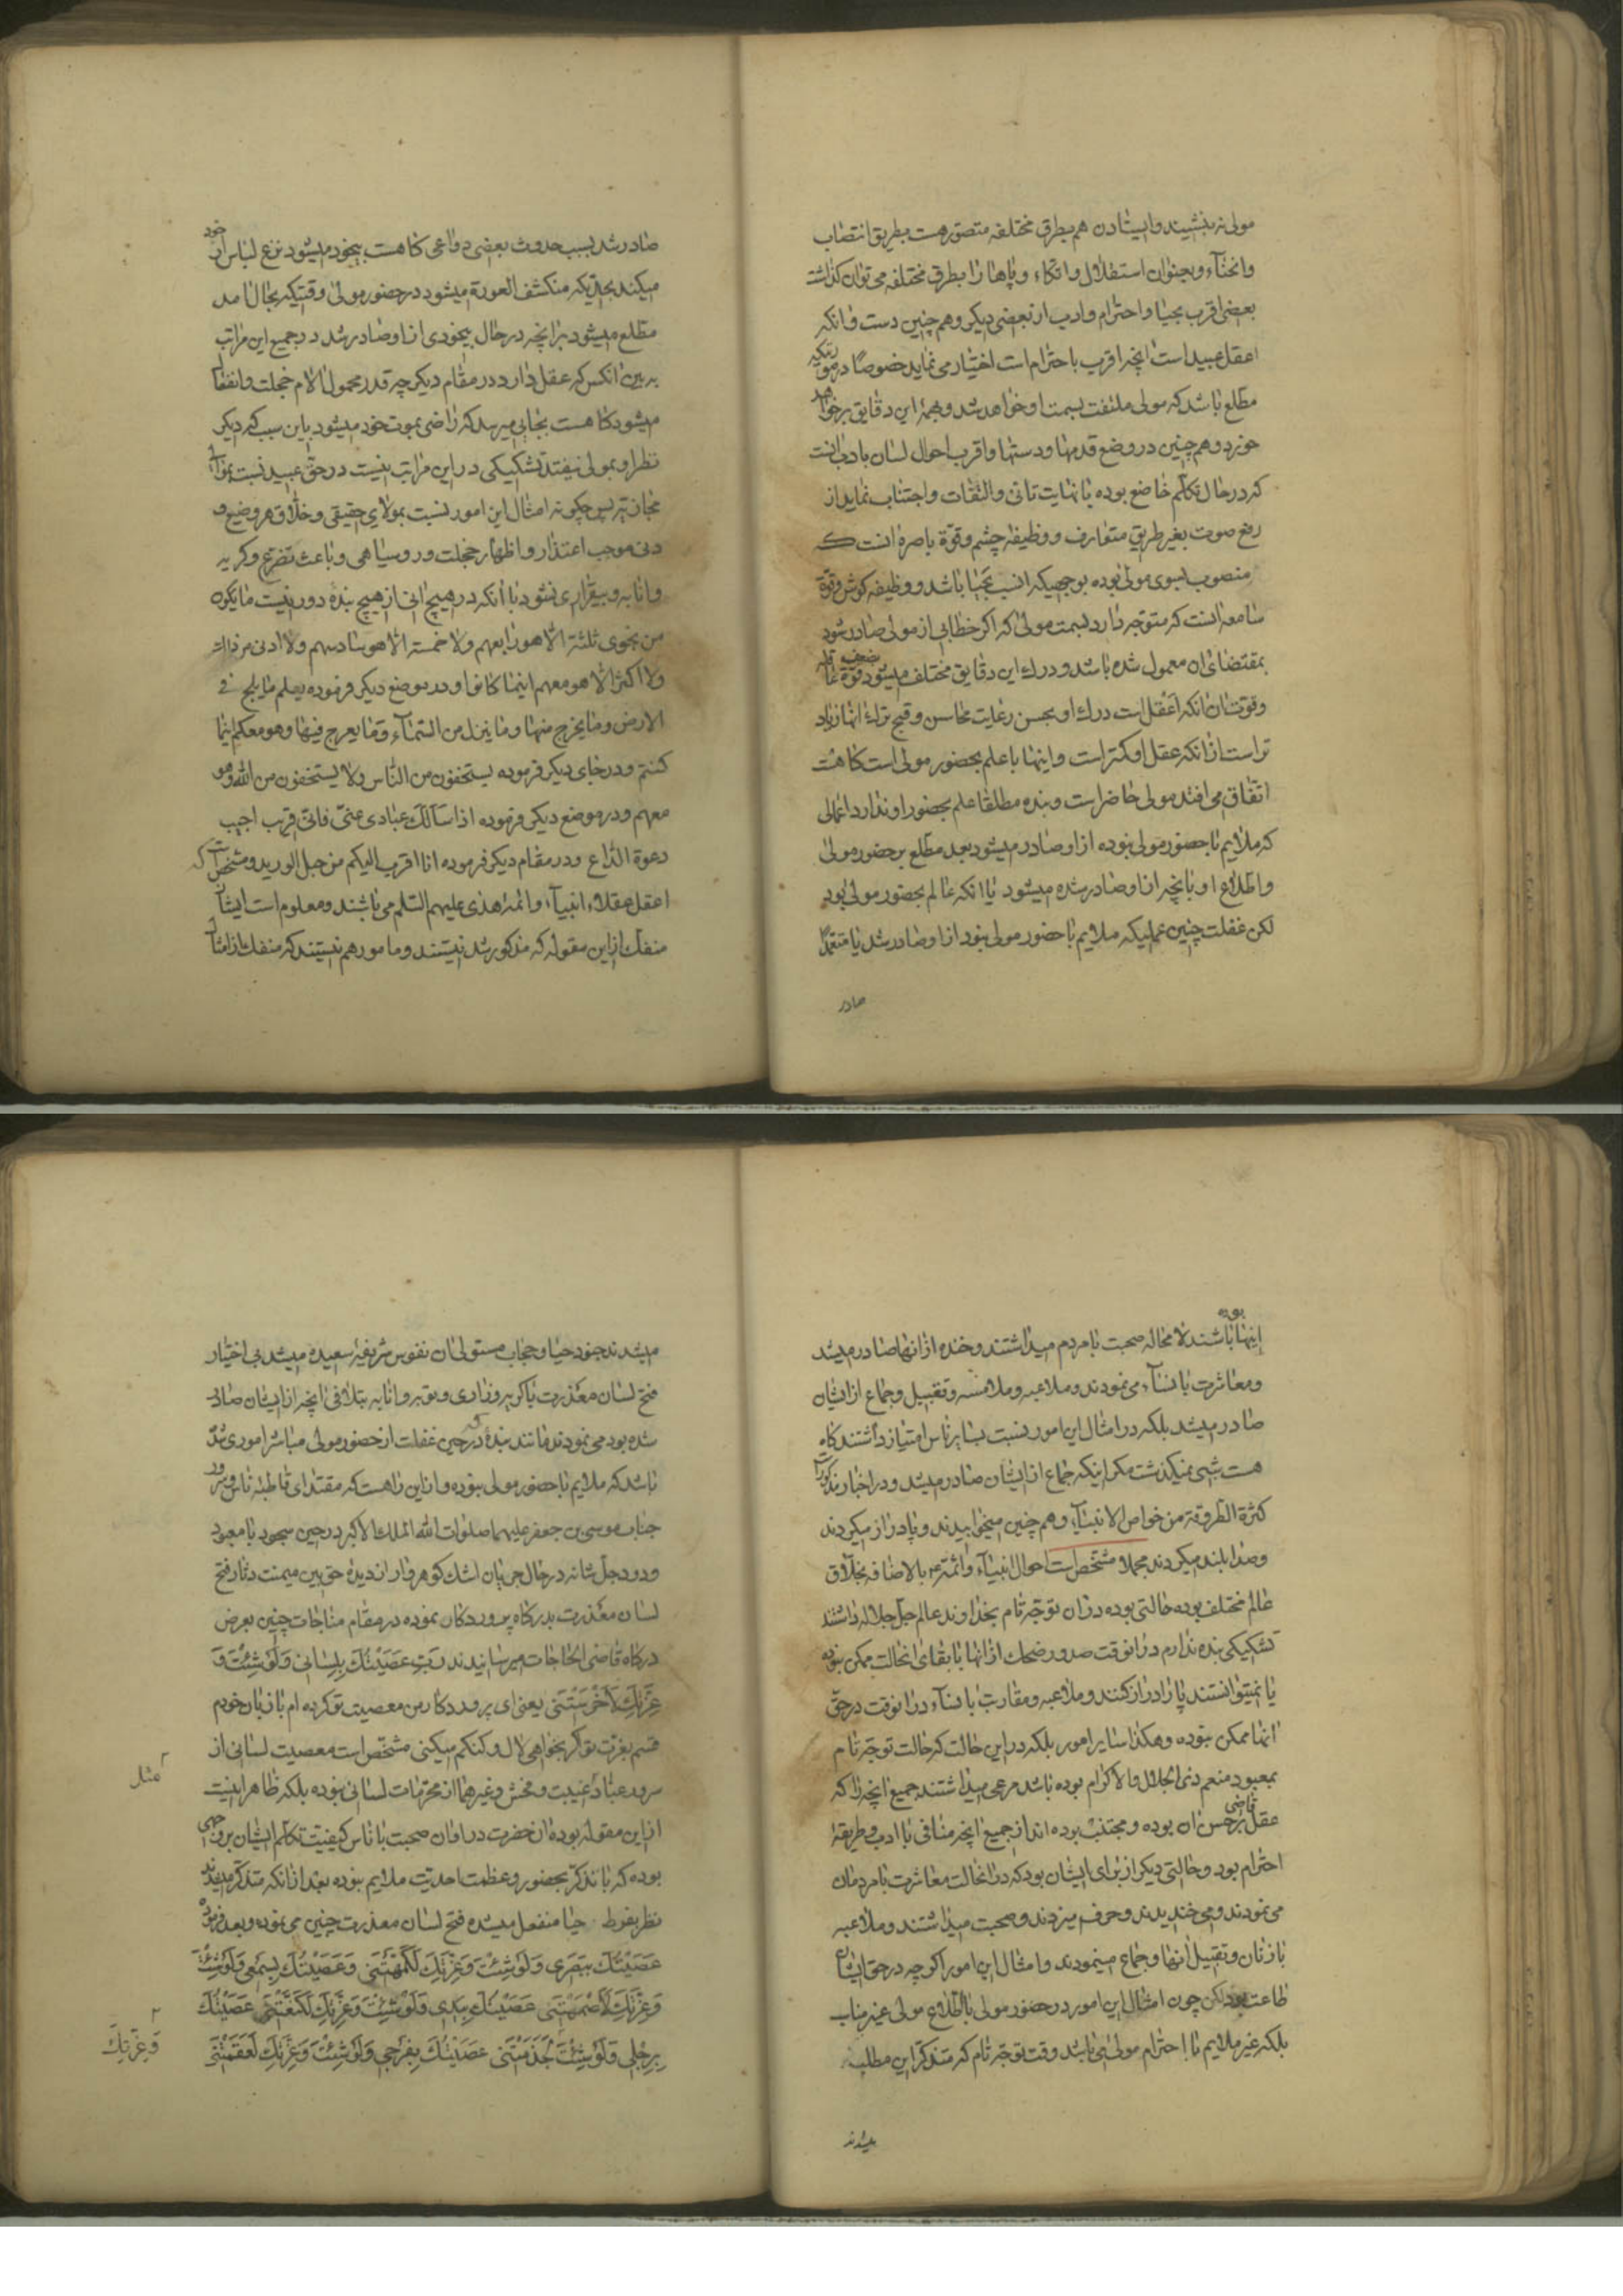 مولی نه بنشیند و ایستادن هم بطرق مختلفه متصور هست بطریق انتصاب
وانحناء و بعنوان استقلال و اتکاء و پاها را بطرق مختلفه می توان کذاشت
بعضی اقرب بحیا و احترام و ادب از بعضی دیکر و هم چنین دست و انکه
اعقل عبید است انچه اقرب باحترام است اختیار می نماید خصوصًا در صورتیکه
مطلع باشد که مولی ملتفت بسمت او خواهد شد و بهمهٔ این دقایق بر خواهد
خورد و هم چنین در وضع قدمها و دستها و اقرب احوال لسان بادب انست
که در حال تکلم خاضع بوده با نهایت تانی و التفات و اجتناب نماید از
رفع صوت بغیر طریق متعارف و وظیفهٔ چشم و قوّة باصره انست که
منصوب بسوی مولی بوده بوجهیکه انسب بحیا باشد و وظیفه کوش و قوّة
سامعه انست که متوجه دارد بسمت مولی که اکر خطابی از مولی صادر شود
بمقتضای ان معمول شده باشد و درک این دقایق مختلف میشود بضعف قوّة عاقله
و قوت ان انکه اعقل است درک او بحسن رعایت محاسن و قبح ترک انها زیاد
تر است از انکه عقل او کمتر است و اینها با علم بحضور مولی است کاه هست
اتفاق می افتد مولی حاضر است و بنده مطلقا علم بحضور او ندارد اعمالی
که ملایم با حضور مولی نبوده از او صادر میشود بعد مطلع بر حضور مولی
و اطلاع او بانچه از او صادر شده میشود یا انکه عالم بحضور مولی بود
لکن غفلت چنین عملیکه ملایم با حضور مولی نبود از او صادر شد یا متعمدًا
صادر
صادر شد بسبب حدوث بعضی دواعی کاه هست بیخود میشود نزع لباس از خود
میکند بحدیکه منکشف العورة میشود در حضور مولی وقتیکه بحال امد
مطلع میشود بر انچه در حال بیخودی از او صادر شد در جمیع این مراتب
به بین انکس که عقل دارد در مقام دیکر چه قدر محمول الام خجلت و انفعال
میشود کاه هست بجایی میرسد که راضی بموت خود میشود باین سبب که دیکر
نظر او بمولی نیفتد تشکیکی در این مراتب نیست در حق عبید نسبت بموالی
مجازیّه پس چکونه امثال این امور نسبت بمولای حقیقی و خلّاق هر وضیع و
دنی موجب اعتذار و اظهار خجلت و رو سیاهی و باعث تضرع و کریه
و انابه و بیقراری نشود با انکه در هیچ انی از هیچ بنده دور نیست ما یکون
من نجوی ثلثة الا هو رابعهم ولا خمسة الا هو سادسهم ولا ادنی من ذالك
ولا اکثر الا هو معهم اینما کانوا و در موضع دیکر فرموده یعلم ما یلج فی
الارض وما یخرج منها وما ینزل من السّماء وما یعرج فیها وهو معکم اینما
کنتم و در جای دیکر فرموده یستخفون من الناس ولا یستخفون من الله وهو
معهم و در موضع دیکر فرموده اذا سألك عبادی عنّی فانّی قریب اجیب
دعوة الدّاع و در مقام دیکر فرموده انا اقرب الیکم من حبل الورید و مشخص است که
اعقل عقلاء انبیاء و ائمه هدی علیهم السّلم می باشند و معلوم است ایشان
منفک از این مقوله که مذکور شد نیستند و مامور هم نیستند که منفک از امثال
اینها بوده باشند لا محاله صحبت با مردم میداشتند و خنده از انها صادر میشد
و معاشرت با نساء می نمودند و ملاعبه و ملامسه و تقبیل و جماع از ایشان
صادر میشد بلکه در امثال این امور نسبت بسایر ناس امتیاز داشتند کاه
هست شبی نمیکذشت مکر اینکه جماع از ایشان صادر میشد و در اخبار مذکور است
کثرة الطروقة من خواص الانبیاء و هم چنین میخوابیدند و پا دراز میکردند
و صدا بلند میکردند مجملا مشخص است احوال انبیاء و ائمه ع بالاضافه بخلّاق
عالم مختلف بوده حالتی بوده در ان توجّه تام بخداوند عالم جل جلاله داشتند
تشکیکی بنده ندارم در انوقت صدور ضحك از انها با بقای انحالت ممکن نبوده
یا نمیتوانستند پا را دراز کنند و ملاعبه و مقاربت با نساء در انوقت در حقّ
انها ممکن نبوده و هکذا سایر امور بلکه در این حالت که حالت توجّه تام
بمعبود منعم ذی الجلال والاکرام بوده باشد مرعی میداشتند جمیع انچه را که
عقل قاضی بر حسن ان بوده و مجتنب بوده اند از جمیع انچه منافی با ادب و طریقهٔ
احترام بود و حالتی دیکر از برای ایشان بود که در انحالت معاشرت با مردمان
می نمودند و می خندیدند و حرف میزدند و صحبت میداشتند و ملاعبه
با زنان و تقبیل انها و جماع مینمودند و امثال این امور اکر چه در حق ایشان
طاعت بود لکن چون امثال این امور در حضور مولی با اطلاع مولی غیر مناسب
بلکه غیر ملایم با احترام مولی می باشد وقت توجّه تام که متذکر این مطلب
میشدند
میشدند جنود حیا و حجاب مستولی ان نفوس شریفهٔ سعیده میشد بی اختیار
فتح لسان معذرت با کریه و زاری و توبه و انابه بتلافی انچه از ایشان صادر
شده بود می نمودند مانند بندهٔ که در حین غفلت از حضور مولی مباشر اموری شد
باشد که ملایم با حضور مولی نبوده و از این راهست که مقتدای قاطبهٔ ناس و سرور
جناب موسی بن جعفر علیهما صلوات الله الملك الاکبر در حین سجود با معبود
ودود جل شانه در حال جریان اشك کوهر وار از دیدهٔ حق بین میمنت دثار فتح
لسان معذرت بدرکاه پروردکان نموده در مقام مناجات چنین بعرض
درکاه قاضی الحاجات میرسانیدند رَبِّ عَصَیْتُكَ بِلِسَانی وَلَوْ شِئْتَ وَ
عِزَّتِكَ لَأَخْرَسْتَنی یعنی ای پروردکار من معصیت تو کرده ام با زبان خودم
قسم بعزت تو کر بخواهی لال و کنکم میکنی مشخص است معصیت لسانی از
سرور عباد مثل غیبت و فحش و غیرهما از محرمات لسانی نبوده بلکه ظاهر اینست
از این مقوله بوده ان حضرت در اوان صحبت با ناس کیفیّت تکلّم ایشان بر وجهی
بوده که با تذکّر بحضور و عظمت احدیّت ملایم نبوده بعد از انکه متذکر میشدند
نظر بفرط حیا منفعل میشده فتح لسان معذرت چنین می نموده و بعد فرموده
عَصَیْتُكَ بِبَصَری وَلَوْ شِئْتَ وَعِزَّتِكَ لَأَكْمَهْتَنی وَعَصَیْتُكَ بِسَمْعی وَلَوْ شِئْتَ
وَعِزَّتِكَ لَأَصْمَمْتَنی عَصَیْتُكَ بِیَدی وَلَوْ شِئْتَ وَعِزَّتِكَ لَكَنَّعْتَنی عَصَیْتُكَ
بِرِجْلی وَلَوْ شِئْتَ وَعِزَّتِكَ لَجَذَمْتَنی عَصَیْتُكَ بِفَرْجی وَلَوْ شِئْتَ وَعِزَّتِكَ لَعَقَمْتَنی